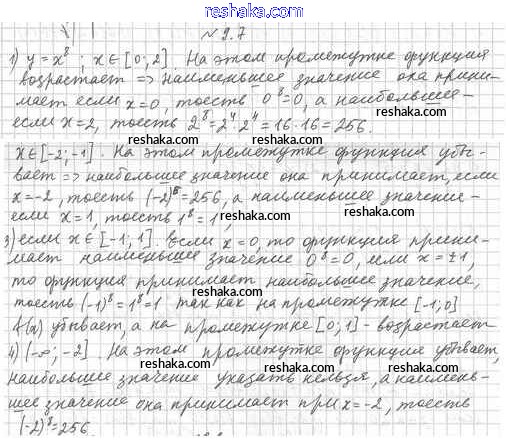 № 9.7
1) y = x⁸; x ∈ [0; 2]. На этом промежутке функция
возрастает => наименьшее значение она прини-
мает если x = 0, тоесть 0⁸ = 0, а наибольшее -
если x = 2, тоесть 2⁸ = 2⁴ · 2⁴ = 16 · 16 = 256.
x ∈ [-2; -1]. На этом промежутке функция убы-
вает => наибольшее значение она принимает, если
x = -2, тоесть (-2)⁸ = 256, а наименьшее значение -
если x = 1, тоесть 1⁸ = 1,
3) если x ∈ [-1; 1]. Если x = 0, то функция прини-
мает наименьшее значение 0⁸ = 0, если x = ±1,
то функция принимает наибольшее значение,
тоесть (-1)⁸ = 1⁸ = 1 так как на промежутке [-1; 0]
f(x) убывает, а на промежутке [0; 1] - возрастает
4) (-∞; -2]. На этом промежутке функция убывает,
наибольшее значение указать нельзя, а наимень-
шее значение она принимает при x = -2, тоесть
(-2)⁸ = 256.
reshaka.ru
reshaka.ru
reshaka.ru
reshaka.ru
reshaka.ru
reshaka.ru
reshaka.ru
reshaka.ru
reshaka.ru
reshaka.ru
reshaka.ru